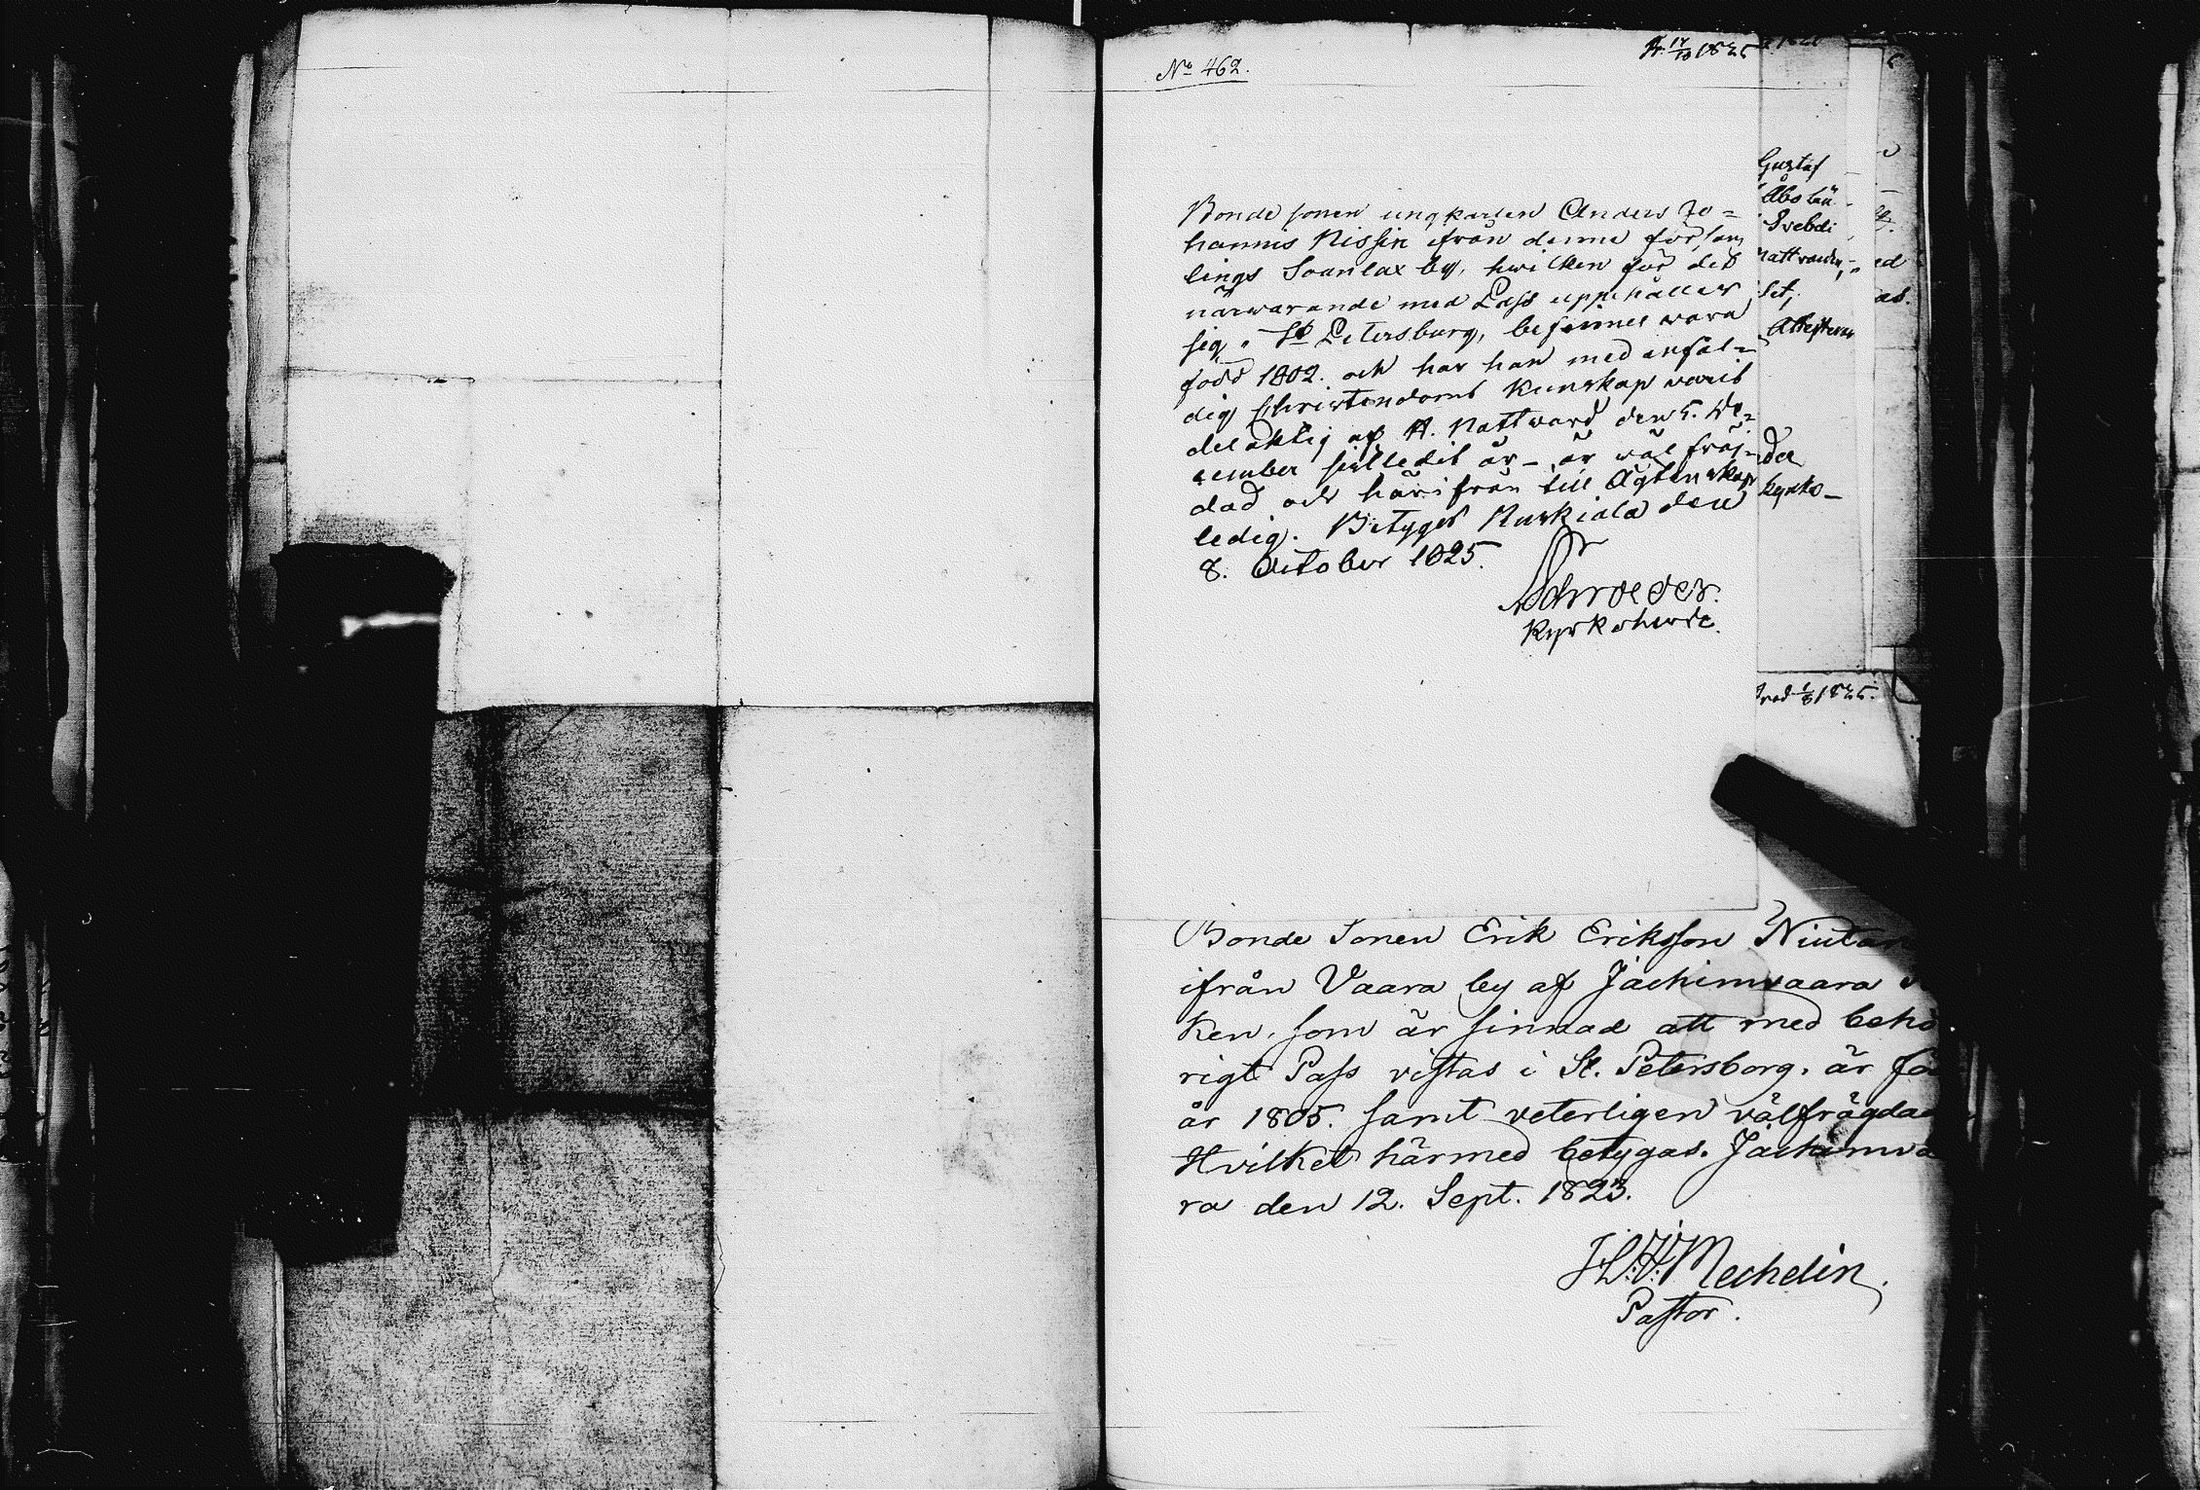 No 462.
Bonde sonen ungkarlen Anders Jo=
hannis Nissin ifrån denne försam
lings Soanlax by, hwilken för det
närwarande med Pass uppehåller
sig i St Petersburg, befinnes wara
född 1802. och har han med enfäl=
dig Christendoms Kunskap warit
delaktig af H. Nattward den 5. De=
cember sistledit år - är wäl fräj=
dad och härifrån till Ägtenskap
ledig. Betygas Ruskiala den
8. October 1825.
Schroeder.
Kyrkoherde.
Gustaf
Åbo Län
Svebeli
nattvarden,
Attesteras
1825.
Bonde Sonen Erik Eriksson Niutan
ifrån Vaara by af Jächimvaara
ken, som är sinnad att med behö
rigt Pass vistas i St. Petersborg, är fö
år 1805. samt veterligen välfrägdad
Hvilket härmed betygas. Jächimva
ra den 12. Sept. 1823.
Mechelin.
Pastor.